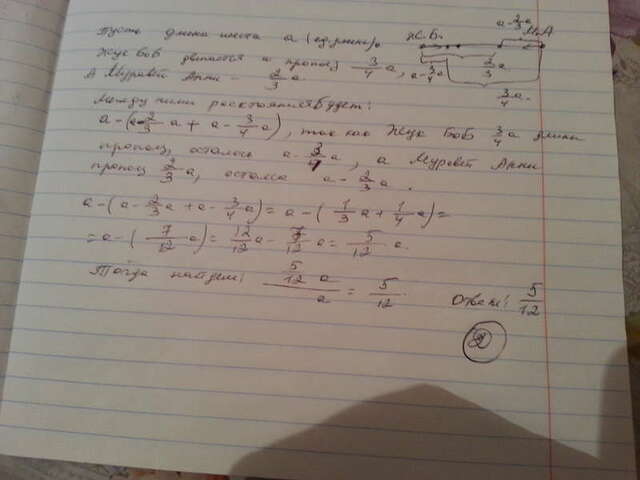 Пусть длина шеста a (ед. длины).
Ж.Б. a-2/3a М.А
Жук Боб двигается и прополз 3/4 a, a-3/4a 2/3a
А Муравей Анни - 2/3 a. 3/4 a.
Между ними расстояние будет:
a-(a-2/3 a + a-3/4 a), так как Жук Боб 3/4 a длины
прополз, осталось a-3/4 a, а Муравей Анни
прополз 2/3 a, остался a-2/3 a.
a-(a-2/3a+a-3/4a)=a-(1/3a+1/4a)=
=a-(7/12 a)=12/12a-7/12a=5/12 a.
Тогда найдем: 5/12 a / a = 5/12 Ответ: 5/12